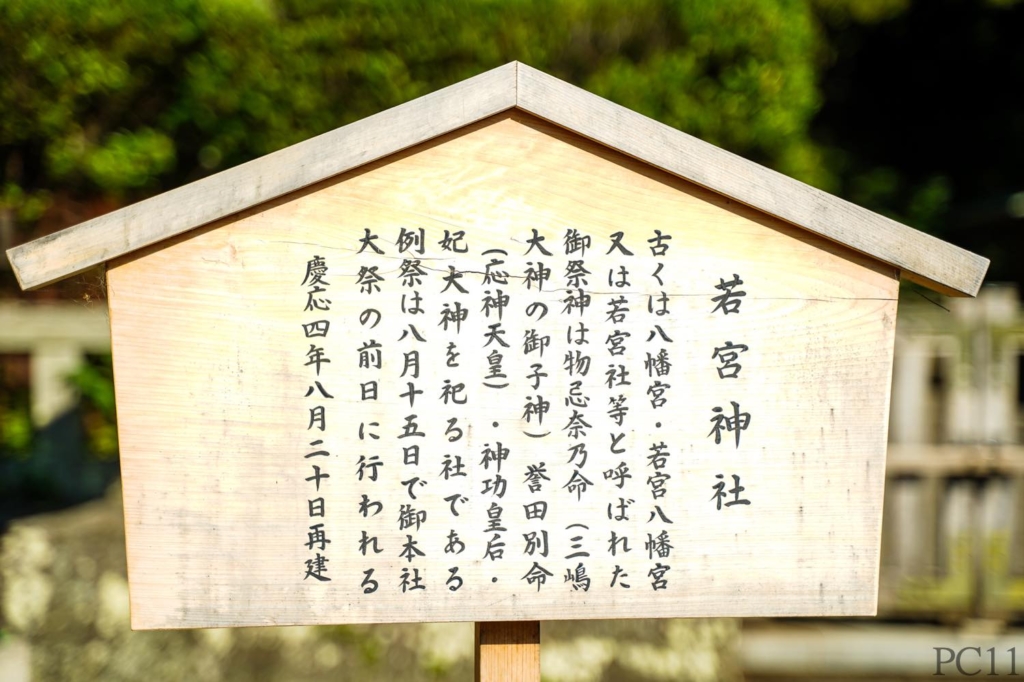 若宮神社
古くは八幡宮・若宮八幡宮
又は若宮社等と呼ばれた
御祭神は物忌奈乃命（三嶋
大神の御子神）誉田別命
（応神天皇）・神功皇后・
妃大神を祀る社である
例祭は八月十五日で御本社
大祭の前日に行われる
慶応四年八月二十日再建
PC11